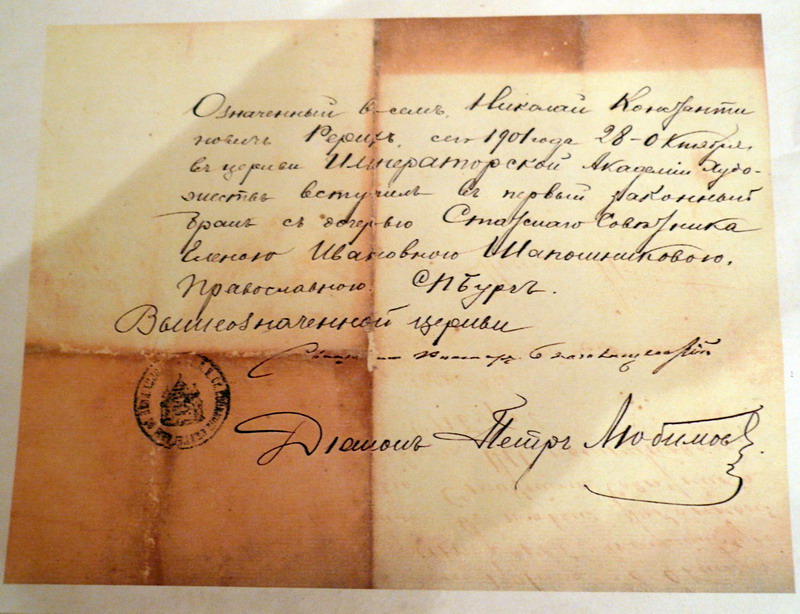 Означенный въ семъ, Николай Константи
новичъ Рерихъ, сего 1901 года 28-Октября,
въ церкви Императорской Академіи Худо-
жествъ вступилъ въ первый законный
бракъ съ дочерью Статскаго Совѣтника
Еленою Ивановною Шапошниковою,
Православною. СПбургъ.
Вышеозначенной церкви
Священник Благовещенскій
Діаконъ Петръ Любимовъ.